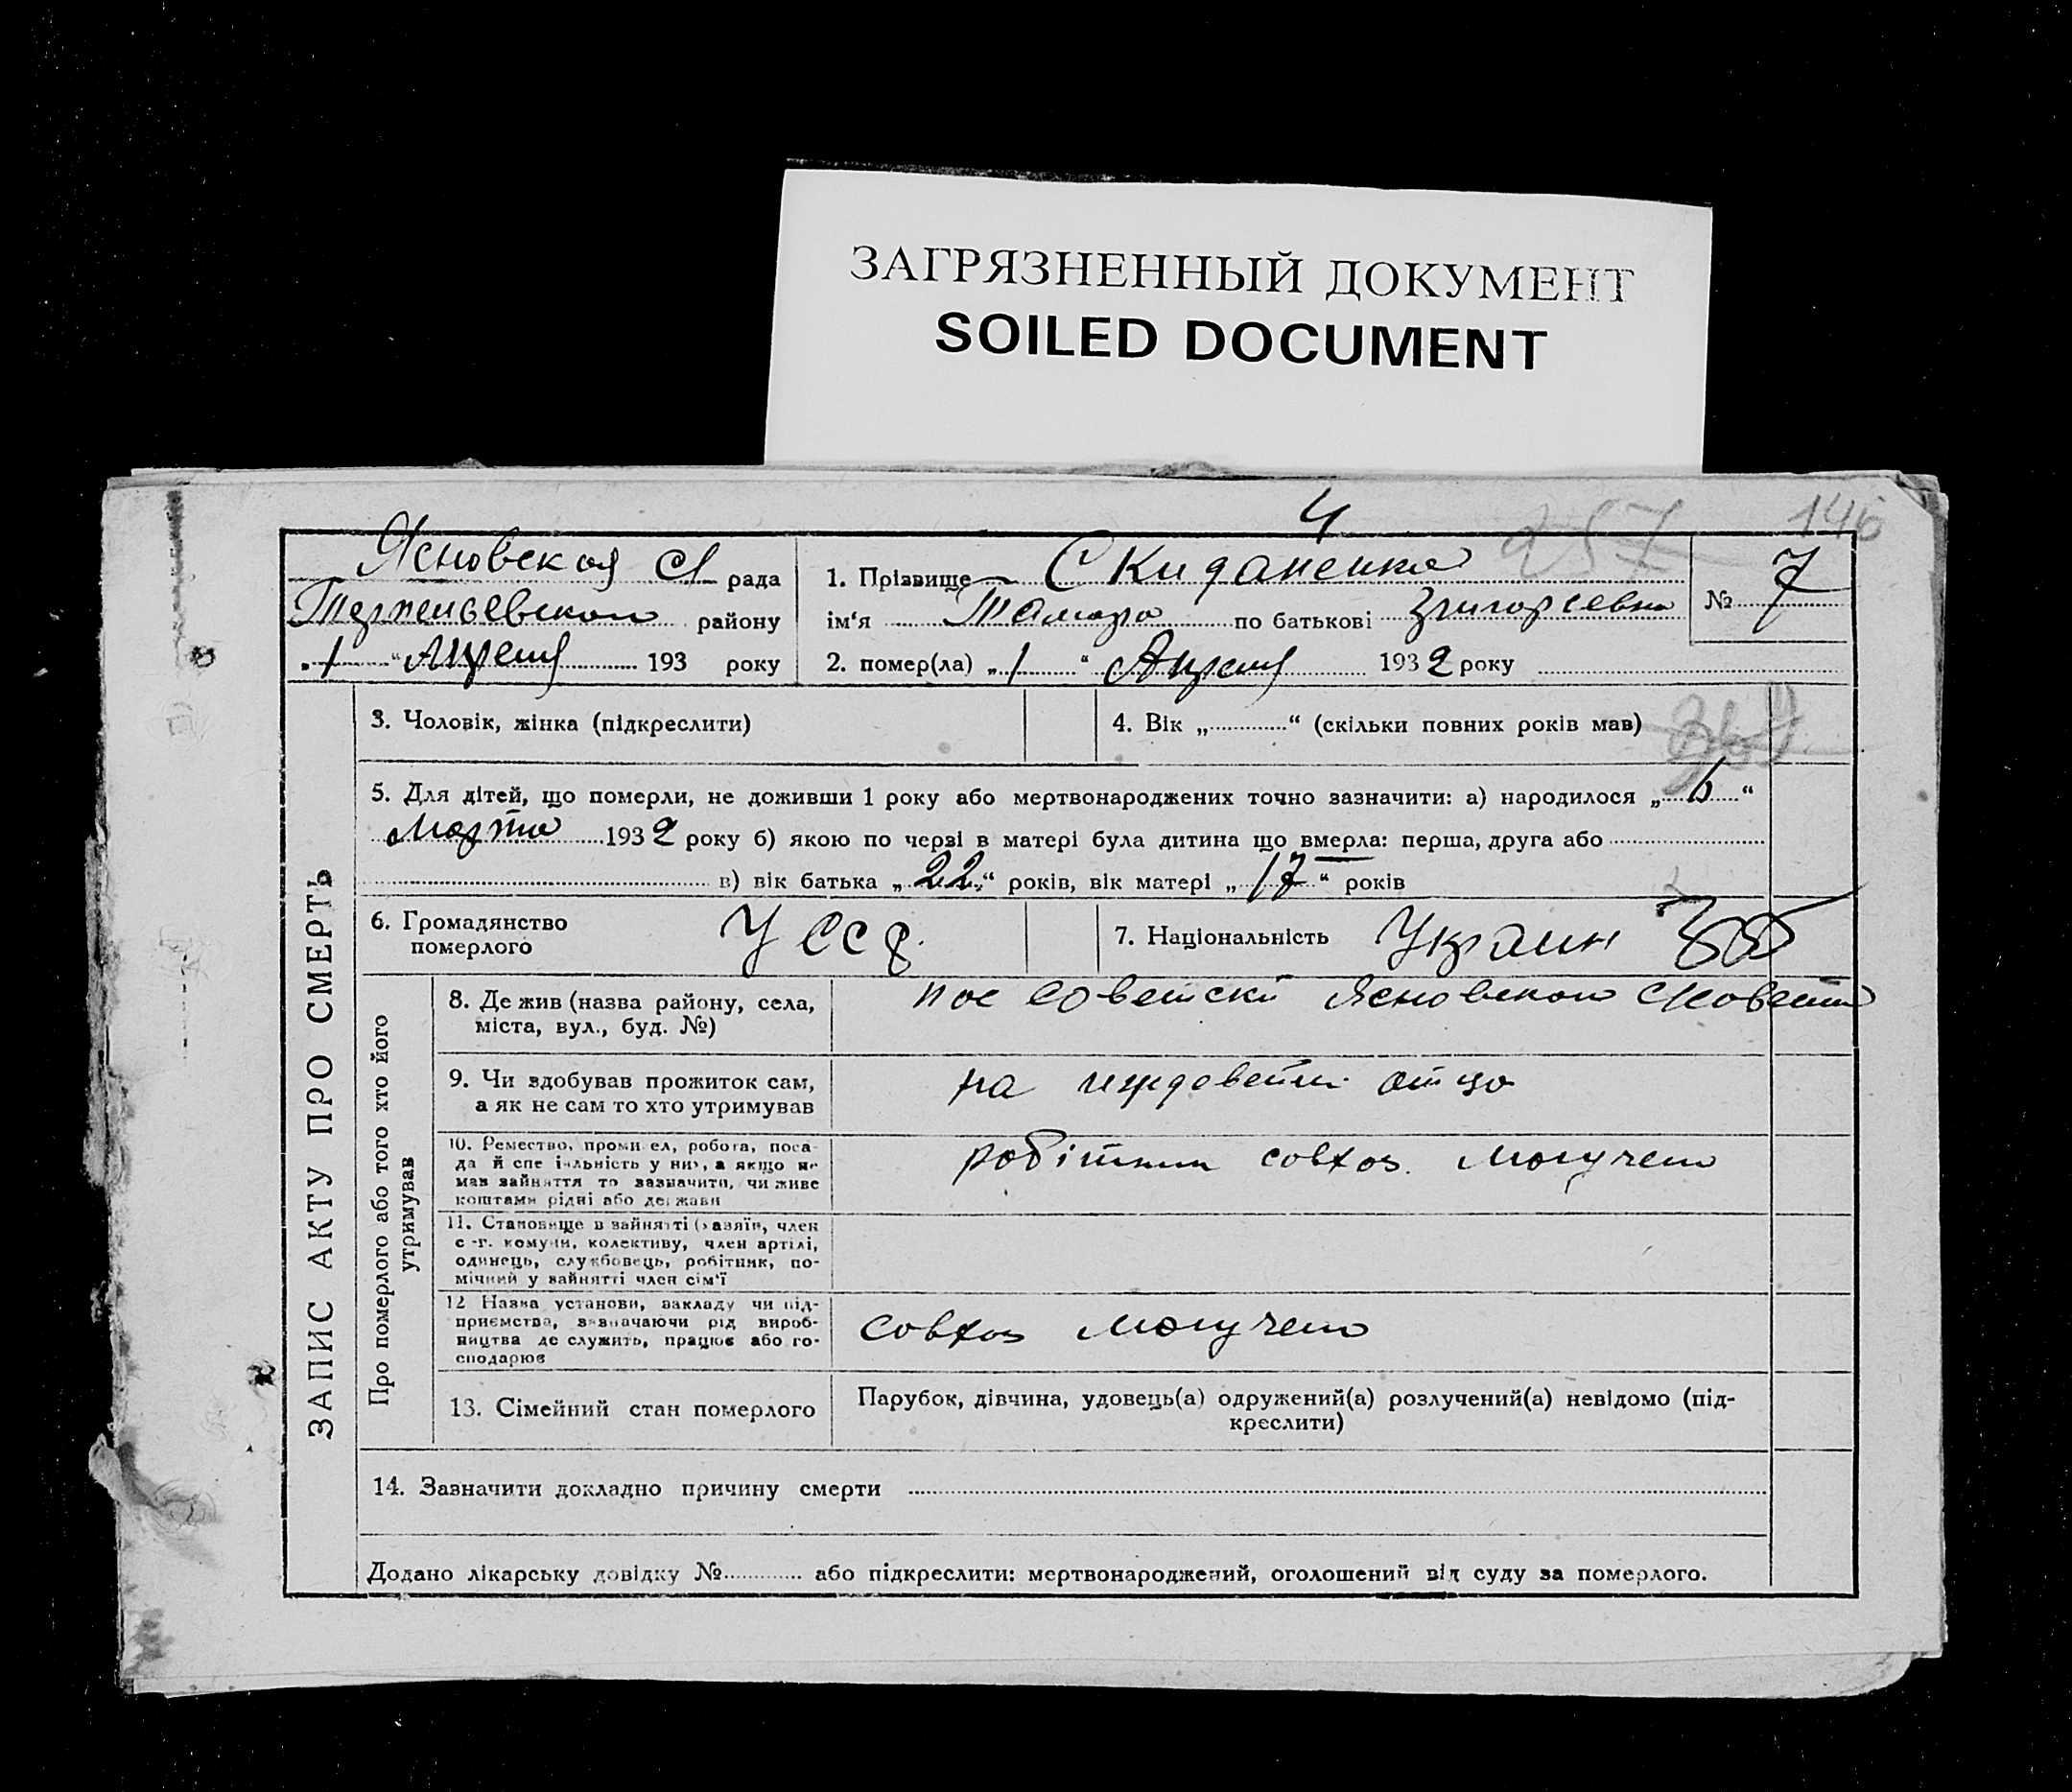 ЗАГРЯЗНЕННЫЙ ДОКУМЕНТ
SOILED DOCUMENT
4 257 146
Ясновская с/ рада
району
„1“ Апреля 193 року
1. Прізвище Скиданенко
ім‘я Тамара по батькові Григорьевна
№ 7
2. помер(ла) „1“ Апреля 1932 року
3. Чоловік, жінка (підкреслити)
4. Вік „ “ (скільки повних років мав)
5. Для дітей, що померли, не доживши 1 року або мертвонароджених точно зазначити: а) народилося „6“
Марта 1932 року б) якою по черзі в матері була дитина що вмерла: перша, друга або
в) вік батька „22“ років, вік матері „17“ років
6. Громадянство
померлого
УССР
7. Національність Украин
ЗАПИС АКТУ ПРО СМЕРТЬ
Про померлого або того хто його
утримував
8. Де жив (назва району, села,
міста, вул., буд. №)
пос Советски Ясновского с/совета
9. Чи здобував прожиток сам,
а як не сам то хто утримував
на иждевении отца
10. Ремество, промисел, робота, поса-
да й спеціяльність у них, а якщо не
мав зайняття то зазначити, чи живе
коштами рідні або держави
робітник совхоз. Могучего
11. Становище в зайнятті (хазяїн, член
с.-г. комуни, колективу, член артілі,
одинець, службовець, робітник, по-
мічний у зайнятті член сім‘ї
12 Назва установи, закладу чи під-
приємства, зазначаючи рід вироб-
ництва де служить, працює або го-
сподарює
совхоз Могучего
13. Сімейний стан померлого
Парубок, дівчина, удовець(а) одружений(а) розлучений(а) невідомо (під-
креслити)
14. Зазначити докладно причину смерти
Додано лікарську довідку № або підкреслити: мертвонароджений, оголошений від суду за померлого.